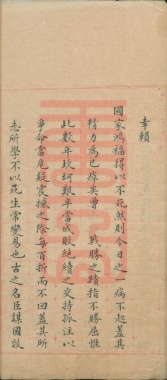 幸賴
國家鴻福得以不死然則今日之一病不起蓋其
精力為已瘁矣曾　戰勝之蹟指不勝屈惟
此數年坎坷艱辛當成敗絕續之交持孤注以
爭命當危疑震撼之際每百折而不回蓋其所
志所學不以死生常變易也古之名臣謀國效